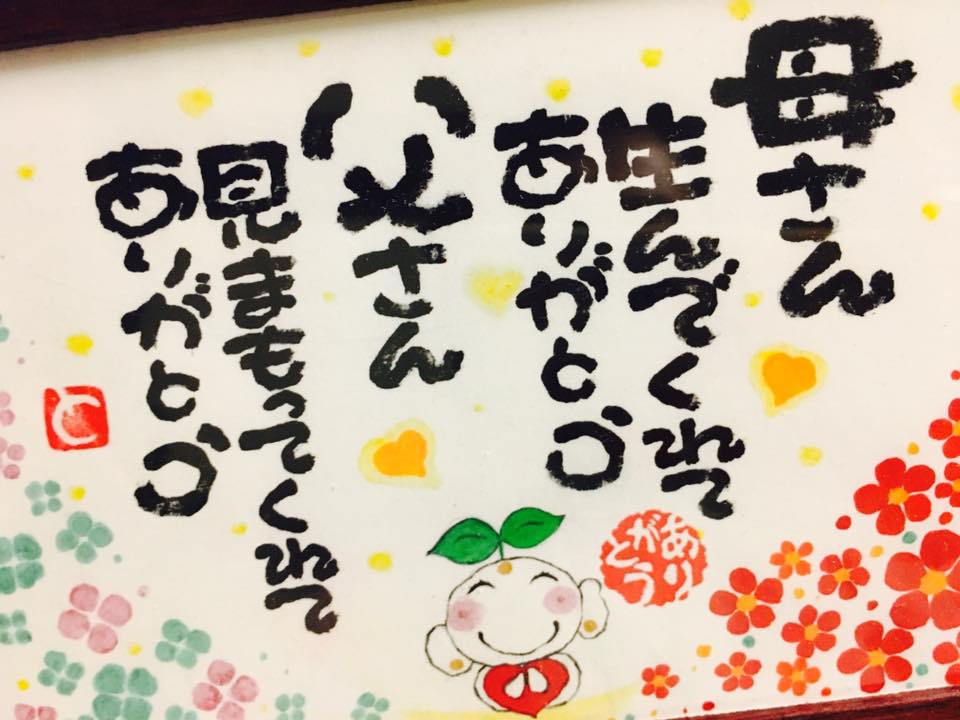 母さん
生んでくれて
ありがとう
父さん
見まもってくれて
ありがとう
ありがとう
と